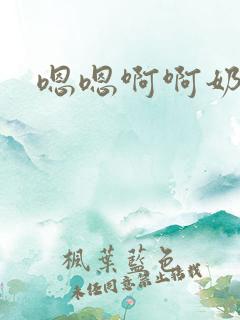 嗯嗯啊啊奶
楓葉藍色
未经同意禁止搭找